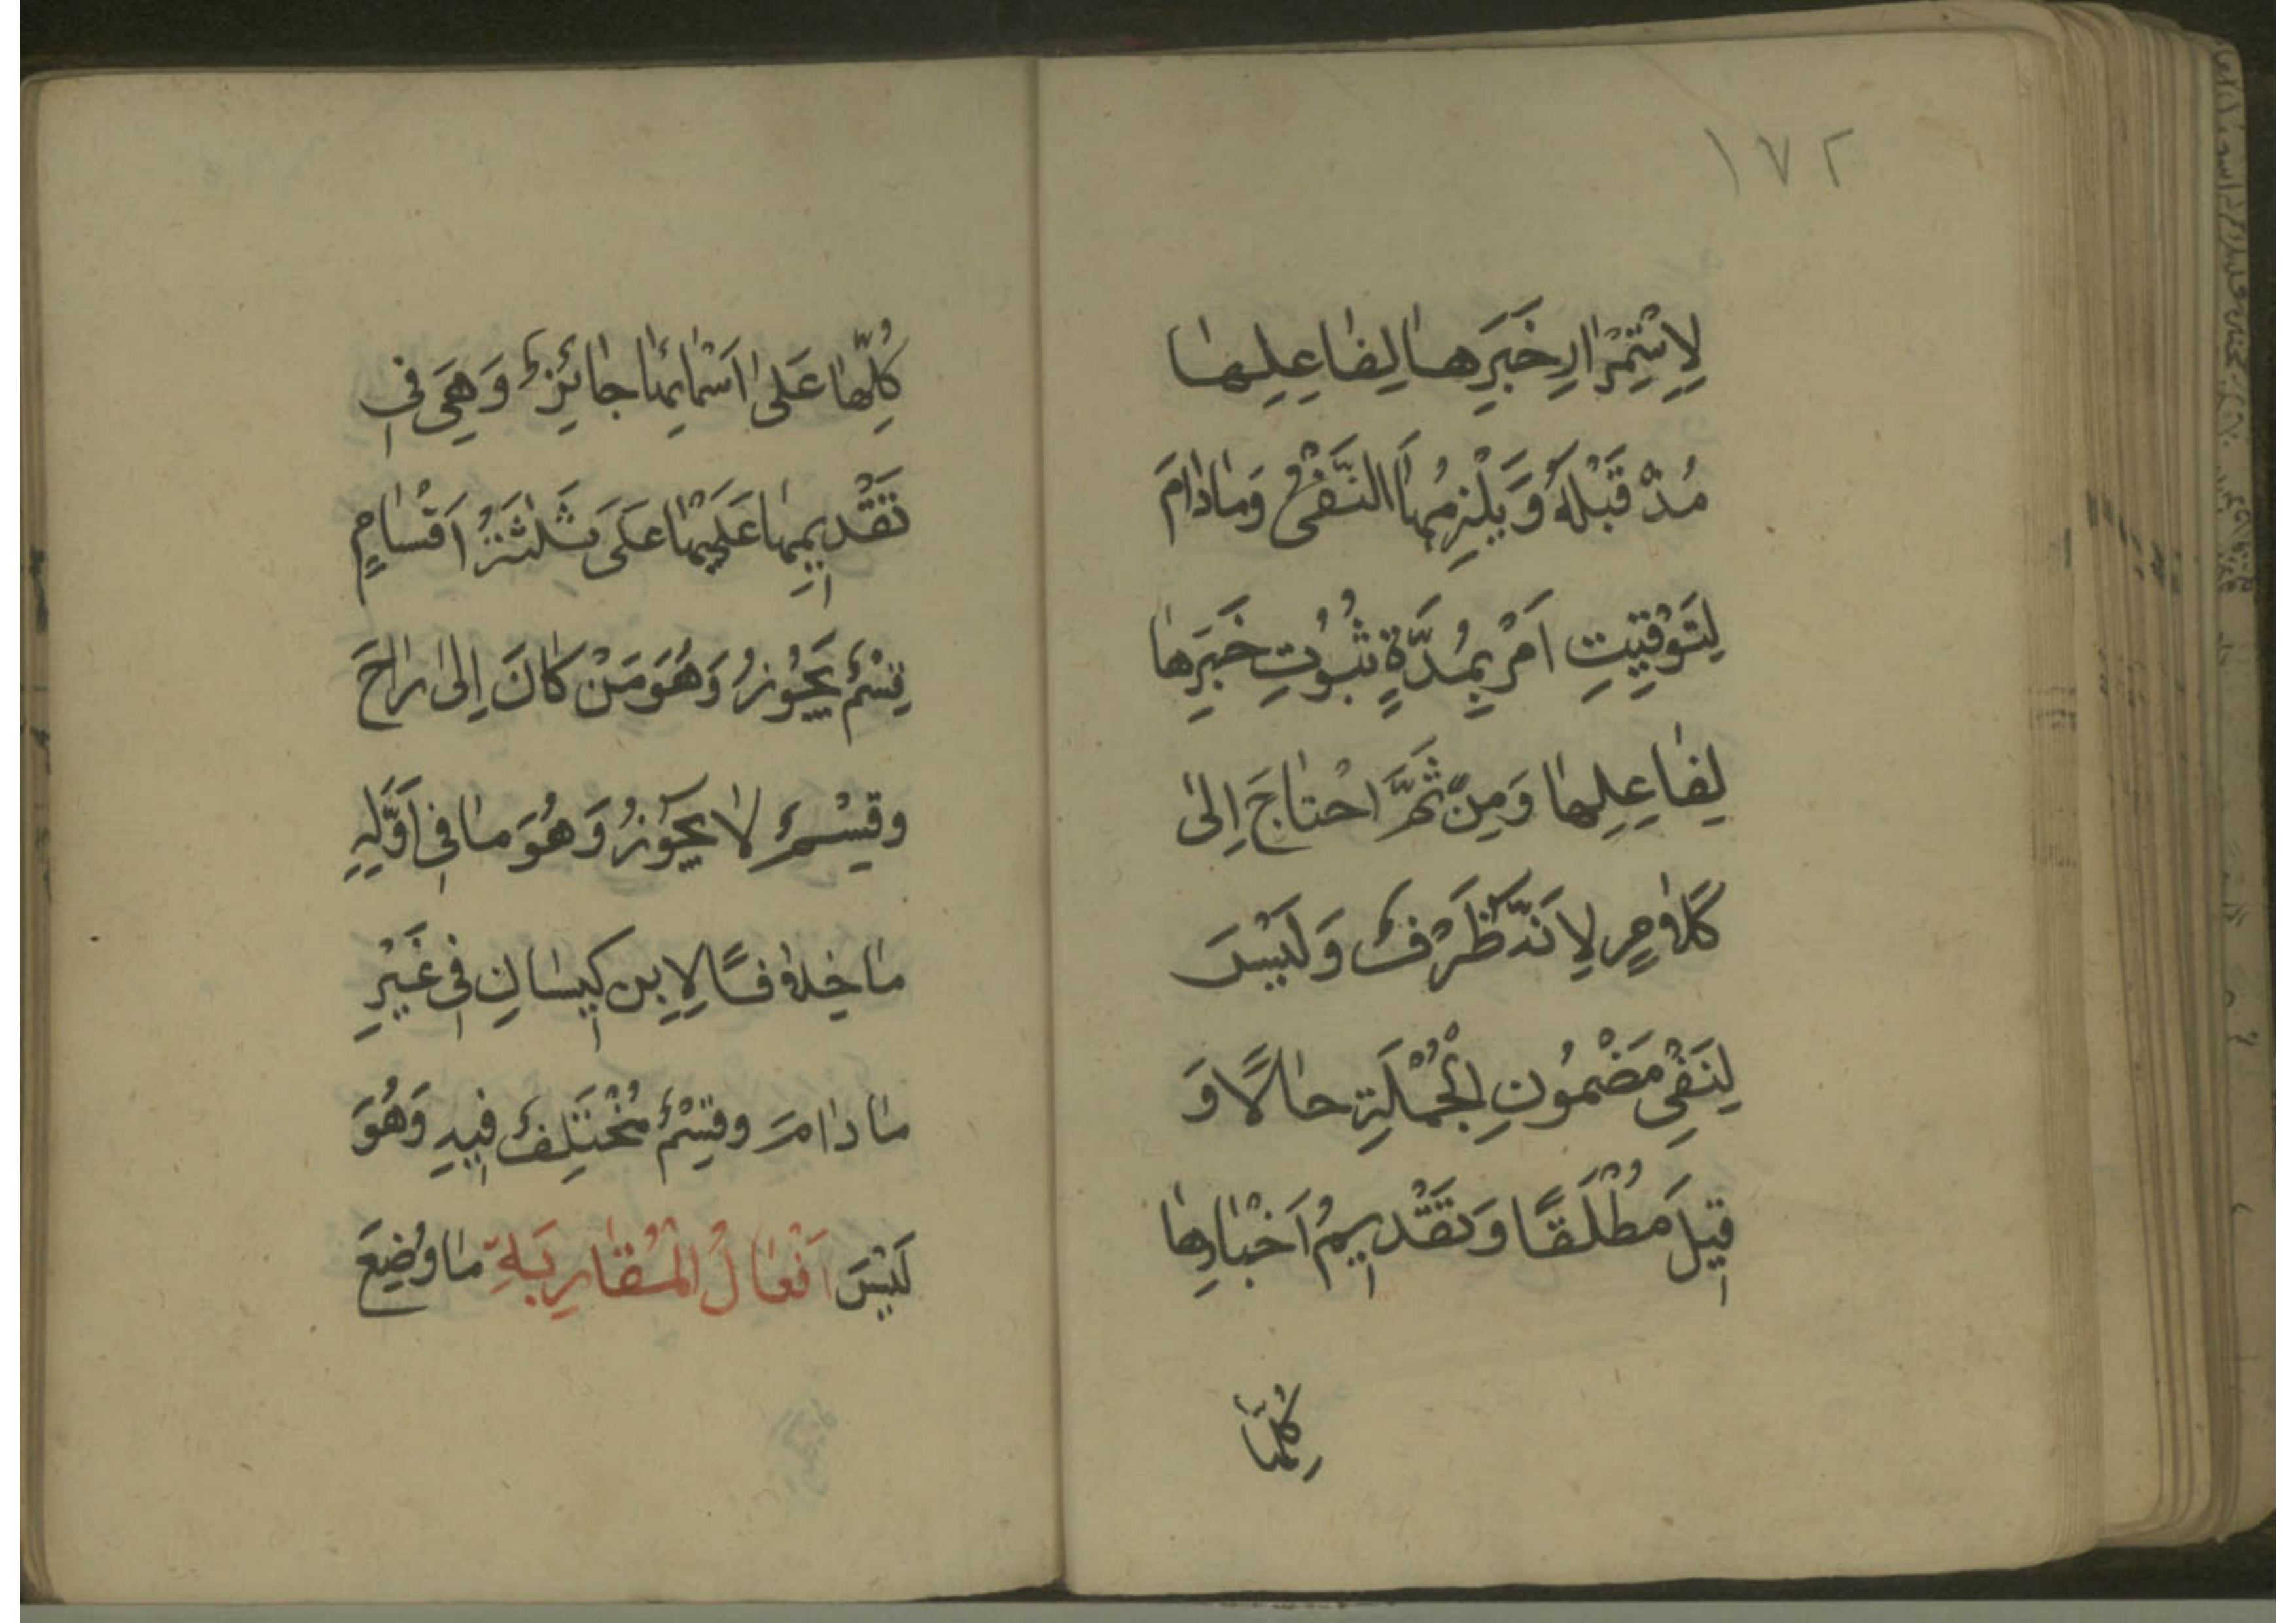 ١٧٢
لِاِسْتِمْرَارِ خَبَرِهَا لِفَاعِلِهَا
مُذْ قَبْلَهُ وَيَلْزِمُهَا النَّفْىُ وَمَا دَامَ
لِتَوْقِيْتِ اَمْرٍ بِمُدَّةٍ ثُبُوْتِ خَبَرِهَا
لِفَاعِلِهَا وَمِنْ ثَمَّ احْتَاجَ اِلٰى
كَلَامٍ لِاَنَّهُ ظَرْفٌ وَلَيْسَ
لِنَفْىِ مَضْمُوْنِ الْجُمْلَةِ حَالًا وَ
قِيْلَ مُطْلَقًا وَتَقْدِيمُ اَخْبَارِهَا
كُلِّهَا
كُلِّهَا عَلٰى اَسْمَائِهَا جَائِزٌ وَهِىَ فِى
تَقْدِيمِهَا عَلَيْهَا عَلَى ثَلٰثَةِ اَقْسَامٍ
قِسْمٌ يَجُوْزُ وَهُوَ مَنْ كَانَ اِلٰى رَاحَ
وقِسْمٌ لَا يَجُوْزُ وَهُوَ مَا فِى اَوَّلِهِ
مَا خِلَافًا لِابِن كِيسَانِ فِى غَيْرِ
مَا دَامَ وقِسْمٌ مُخْتَلِفٌ فِيهِ وَهُوَ
لَيْسَ اَفْعَالُ الْمُقَارِبَةِ مَا وُضِعَ